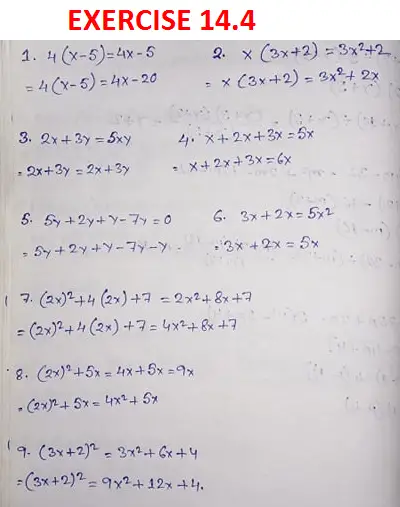 EXERCISE 14.4
1. 4(x-5)=4x-5
2. x(3x+2)=3x²+2
=4(x-5)=4x-20
=x(3x+2)=3x²+2x
3. 2x+3y=5xy
4. x+2x+3x=5x
=2x+3y=2x+3y
=x+2x+3x=6x
5. 5y+2y+y-7y=0
6. 3x+2x=5x²
=5y+2y+y-7y-y
=3x+2x=5x
7. (2x)²+4(2x)+7=2x²+8x+7
=(2x)²+4(2x)+7=4x²+8x+7
8. (2x)²+5x=4x+5x=9x
=(2x)²+5x=4x²+5x
9. (3x+2)²=3x²+6x+4
=(3x+2)²=9x²+12x+4.